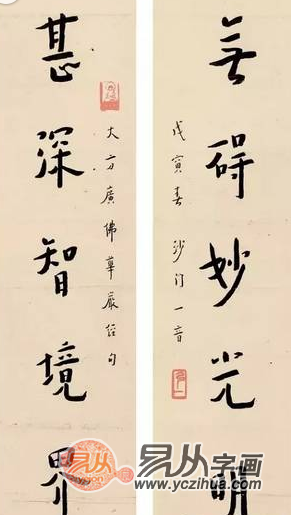 無碍妙光明
戊寅春 沙门一音
甚深智境界
大方廣佛華嚴经句
易从字画
www.yczihua.com